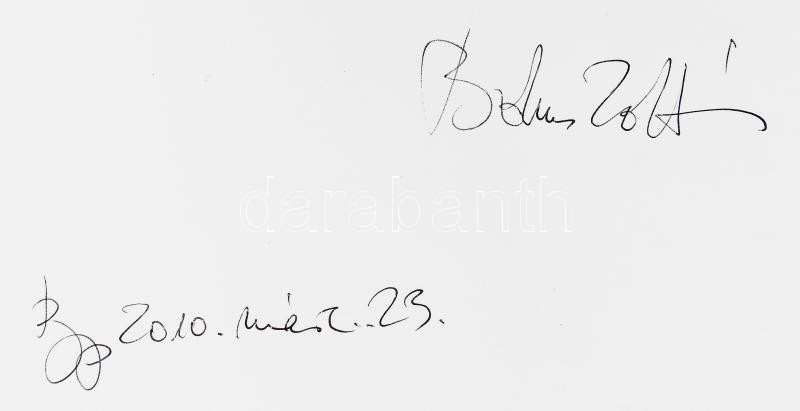 Bohus Zoltán
darabanth
Bp 2010. márc. 23.